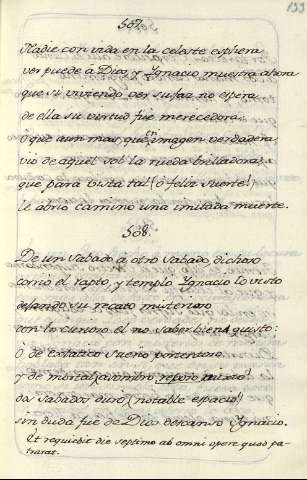 133
507.
Nadie con vida en la celeste esphera
ver puede à Dios, y Ygnacio muestra ahora
que si viviendo ver su faz no espera
de ella su virtud fue merecedora;
ò que aun mas, que en imagen verdadera
viò de aquel sol la rueda brilladora;
que para vista tal (ò feliz suerte!)
le abriò camino una imitada muerte.
508.
De un sabado à otro sabado, dichoso
corriò el rapto, y templo Ygnacio lo visto
su recato misterioso
con lo curioso el no saber bien quisto:
ò de extatico sueño portentoso
y de mortal assombro,
dos sabados durò (notable espacio!)
sin duda fue de Dios descanso Ygnacio.
Et requievit die septimo ab omni opere quod pa-
trarat.